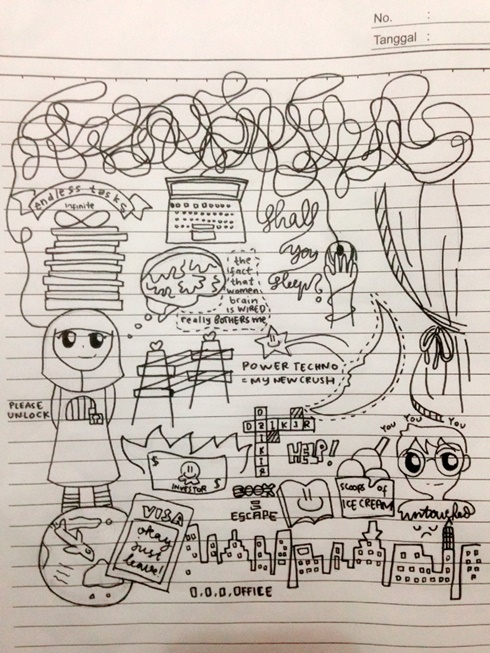 No. :
Tanggal :
endless tasks
infinite
Shall
You
Sleep?
the
fact
that
women
brain
is WIRED
really BOTHERS me
POWER TECHNO
= MY NEW CRUSH
PLEASE
UNLOCK
DZIKIR
DZIKIR
HELP!
YOU YOU YOU
$ $
INVESTOR
BOOK
=
ESCAPE
SCOOPS of
ICE CREAM
untouched
VISA
okay
just
leave!
O.O.O.OFFICE